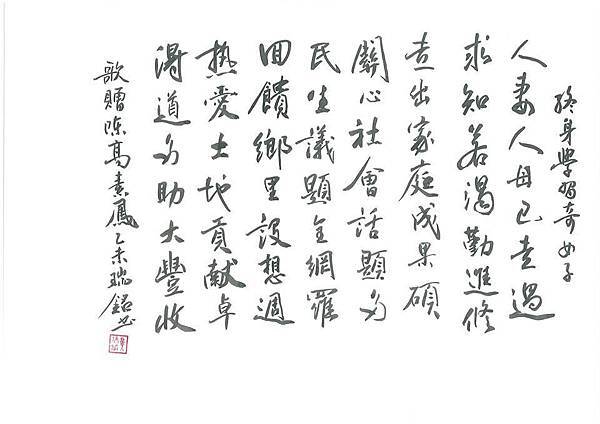 終身學習奇女子
人妻人母已走過
求知若渴勤進修
走出家庭成果碩
關心社會話題多
民生議題全網羅
回饋鄉里設想週
熱愛土地貢獻卓
得道多助大豐收
歌贈陳高素鳳乙未瑞銘书